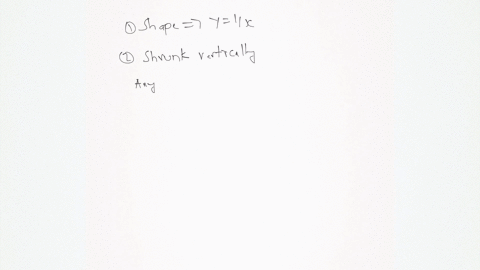 ① Shape => Y = 1/x
② Shrunk vertically